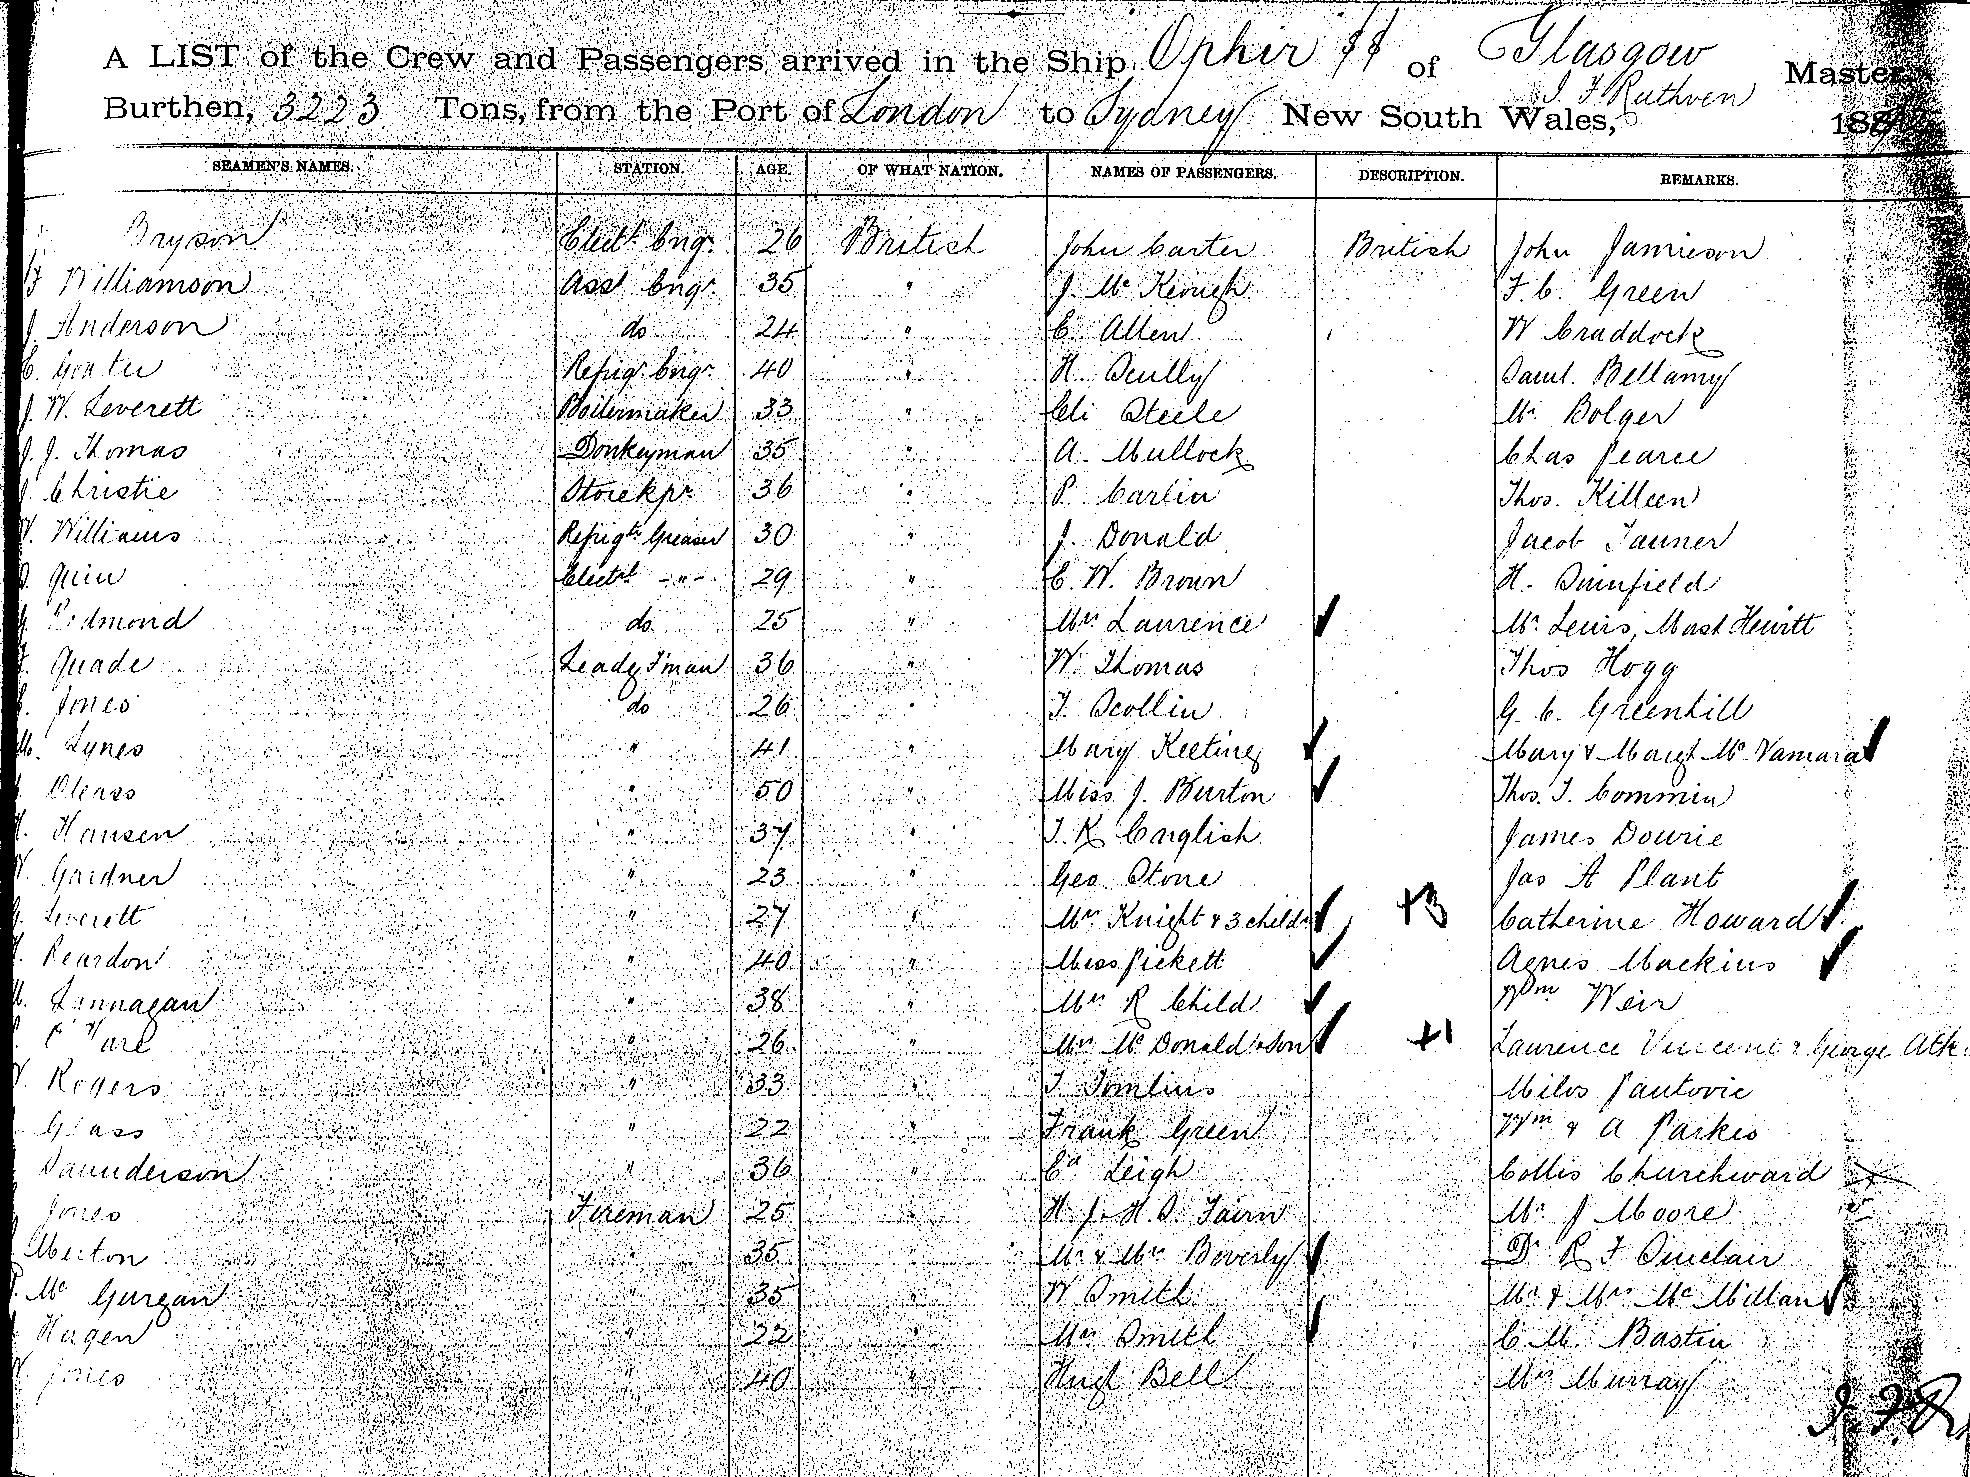 A LIST of the Crew and Passengers arrived in the Ship Ophir SS of Glasgow
J F Ruthven Master
Burthen, 3223 Tons, from the Port of London to Sydney New South Wales, 188
SEAMEN'S NAMES. STATION. AGE. OF WHAT NATION. NAMES OF PASSENGERS. DESCRIPTION. REMARKS.
Bryson Elect. Engr. 26 British John Carter British John Jamieson
Williamson Asst Engr. 35 " J. Mc Keough F. C. Green
J. Anderson do 24 " C. Allen W Craddock
E. Goater Refrigr. Engr. 40 " H. Scully Saml. Bellamy
J. W. Leverett Boilermaker 33 " Eli Steele Mr Bolger
J. J. Thomas Donkeyman 35 " A. Mullock Chas Pearce
J. Christie Storekpr. 36 " P. Carlin Thos. Killeen
W. Williams Refrigtr Greaser 30 " J. Donald Jacob Tanner
Quin Elect. -"- 29 " C. W. Brown H. Swinfield
Redmond do 25 " Mrs Laurence Mr. Lewis, Mast Hewitt
Quade Leadg F'man 36 " W. Thomas Thos Hogg
Jones do 26 " T. Scollin G. C. Greenhill
M. Lynes " 41 " Mary Keeting Mary & Margt Mc Namara
Pleass " 50 " Miss J. Burton Thos. J. Commin
H. Hansen " 37 " J. K. English James Dowrie
W Gardner " 23 " Geo. Stone Jas A Plant
G. Leverett " 27 " Mrs Knight & 3 childn +3 Catherine Howard
Reardon " 40 " Miss Pickett Agnes Mackins
M. Lannagan " 38 " Mrs R Child Wm Weir
O'Hare " 26 " Mrs Mc Donald & Son +1 Laurence Vincent & George Atk
W Rogers " 33 " J. Tomlins Milos Pautovic
Glass " 22 " Frank Green Wm & A Parkes
Saunderson " 36 " Ed Leigh Collis Churchward
Jones Fireman 25 " H. J. H. S. Fairn Mr. J Moore
Merton " 35 " Mr & Mrs Beverly Dr R F Sinclair
P. Mc Gurgan " 35 " W Smith Mr & Mrs Mc Millan
Hagen " 22 " Mrs Smith C. M. Bastin
W Jones " 40 " Hugh Bell Mrs Murray
J. F. R